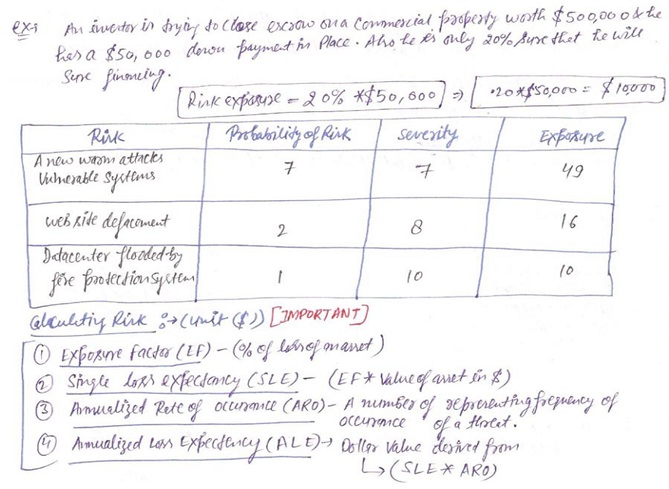 Ex-: An investor is trying to close escrow on a commercial property worth $500,000 & he
has a $50,000 down payment in Place. Also he is only 20% sure that he will
sure financing.
Risk exposure = 20% *$50,000 => .20*$50,000 = $10,000
Risk Probability of Risk Severity Exposure
A new worm attacks
Vulnerable Systems 7 7 49
web site defacement 2 8 16
Datacenter flooded by
fire protection system 1 10 10
Calculating Risk :→ (unit ($)) [IMPORTANT]
① Exposure Factor (EF) - (% of loss of an asset)
② Single loss expectancy (SLE) - (EF * Value of asset in $)
③ Annualized Rate of occurance (ARO) - A number of representing frequency of
occurance of a threat.
④ Annualized Loss Expectancy (ALE) → Dollar Value derived from
↳ (SLE * ARO)